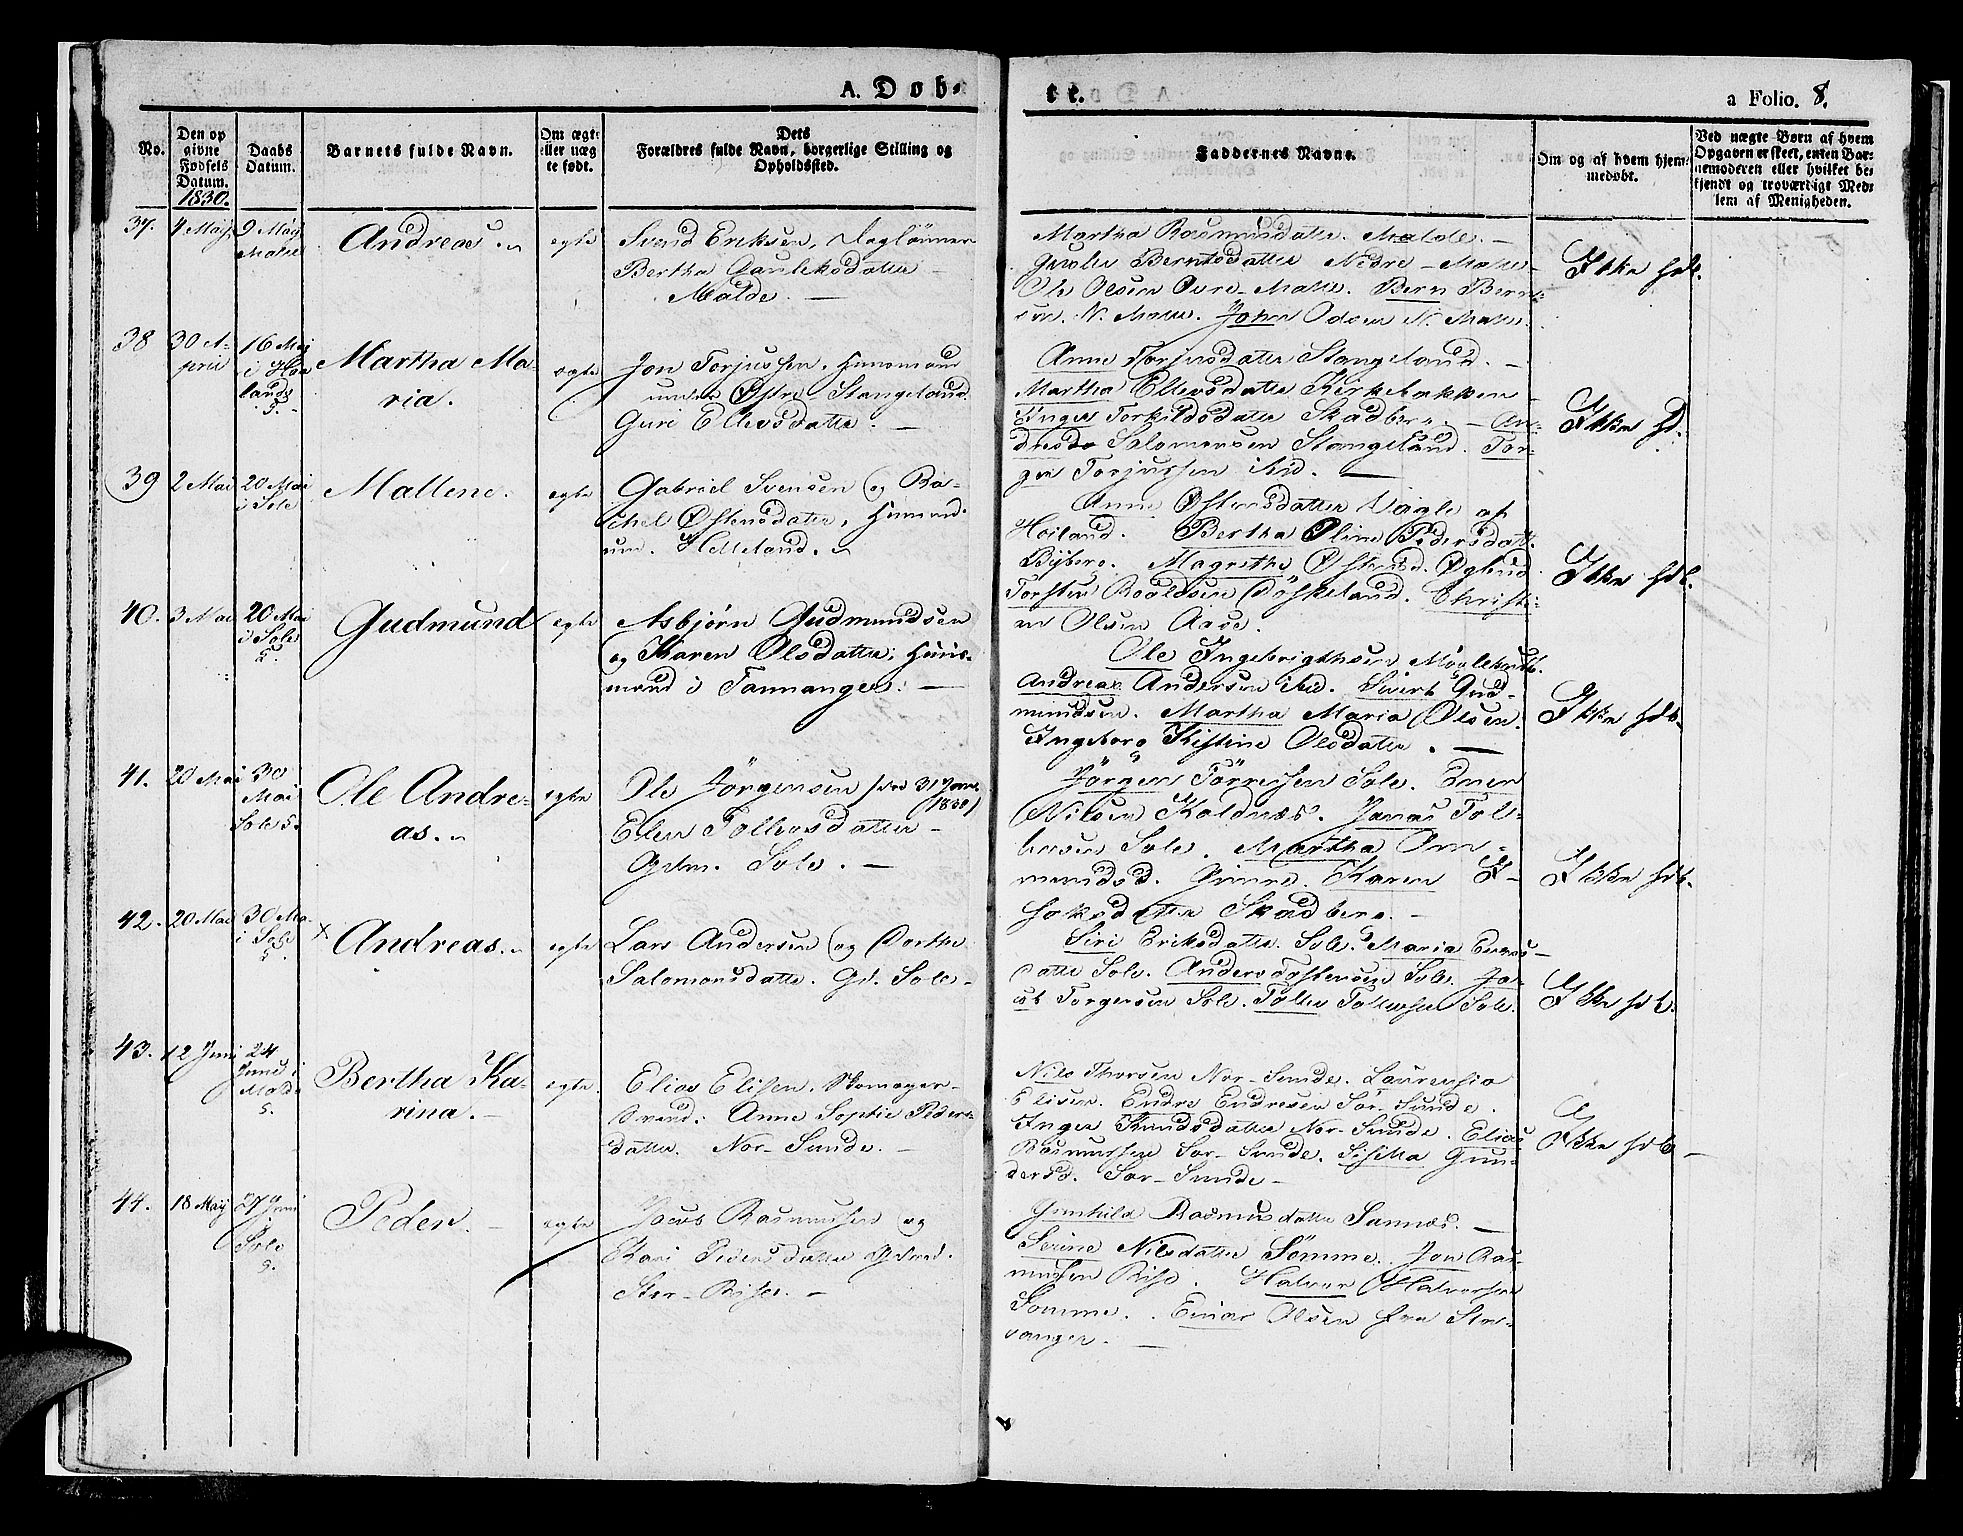 A. Døb-
te.
a Folio. 8.
No.
Den op
givne
Fødsels
Datum.
1830.
Daabs
Datum.
Barnets fulde Navn.
Om ægte
eller uæg
te født.
Dets
Forældres fulde Navn, borgerlige Stilling og
Opholdssted.
Faddernes Navne.
Om og af hvem hjem-
medøbt.
Ved uægte Børn af hvem
Opgaven er skeet, enten Bar-
nemoderen eller hvilket be-
kjendt og troværdigt Med-
lem af Menigheden.
37.
4 Maij
9 Maij
Malde
Andreas.
egte
Svend Eriksen, Daglønner
Bertha Gauleksdatter
Malde.
Martha Rasmusdatter Malde.
Berntsdatter Nedre-Malle
Ole Olsen Øvre-Malle. Bern Bernt-
sen. N. Malle. John Odsen N. Malle.
Ikke hdb.
38
30 A-
pril
16 Maj
i Haa
lands
5.
Martha Ma-
ria.
egte
Jon Torjussen, Huusmand
under Østre Stangeland
Guri Ellevsdatter.
Anne Torjusdatter Stangeland.
Martha Ellevsdatter Kirkebakken
Inger Torkildsdatter Skadberg. An-
dreas Salomonsen Stangeland. Tor-
ger Torjussen ibid.
Ikke hd.
39
2 Mai
20 Mai
i Sole
Mallene.
egte
Gabriel Svensen og Ra-
chel Østensdatter, Huusmd.
Helleland.
Anne Østensdatter Vagle af
Høiland. Bertha Oline Pedersdatt.
Byberg. Magrethe Østensd. Øglend
Torsten Roaldsen Døskeland. Christi-
an Olsen Aase.
Ikke hdb.
40.
3 Mai
20 Mai
i Sole
5.
Gudmund
egte
Asbjørn Gudmundsen
og Karen Olsdatter, Huus-
mand i Tannanger.
Ole Ingebrigthsen
Andreas Andersen ibid. Sivert Gud-
mundsen. Martha Maria Olsen.
Ingeborg Kistine Olsdatter.
Ikke hdb.
41.
20 Mai
30
Mai
Sole 5.
Ole Andre-
as.
egte
Ole Jörgensen
1830)
Elen Tollevsdatter
Gdm. Sole.
Jörgen Törresen Sole.
Nilsen Koldnæs. Jonas Tol-
levsen Sole. Martha Om-
mundsd. Karen I-
saksdatter Skadberg.
Ikke hdb.
42.
20 Mai
30 Ma-
i Sole
5.
x
Andreas.
egte
Lars Andersen og Dorthe
Salomonsdatter. Gd. Sole.
Siri Eriksdatter Sole. Maria
datter Sole. Anders Tostensen Sole. Ja-
cob Torgersen Sole. Tollev Tollevsen Sole.
Ikke hdb.
43.
12 Juni
24
Juni i
Malde
5.
Bertha Ka-
rina.
egte.
Elias Elisen, Skomager-
svend. Anne Sophie Peders-
datter. Nor-Sunde.
Nils Thorsen Nor-Sunde. Laurensia
Elisen. Endre Endresen Sør-Sunde.
Inger Knudsdatter Nor-Sunde. Elias
Rasmussen Sør-Sunde. Gun-
dersd. Sør-Sunde.
Ikke hdb.
44.
18 Maij
27 Juni
i
Sole
5.
Peder.
egte
Jacob Rasmussen og
Kari Pedersdatter Gdmd.
Stor-Risa.
Gunhild Rasmusdatter Sannæs.
Serine Nilsdatter Sømme. Jon Ras-
mussen Risa. Halvor Halvorsen
Somme. Einar Olsen fra Sta-
vanger.